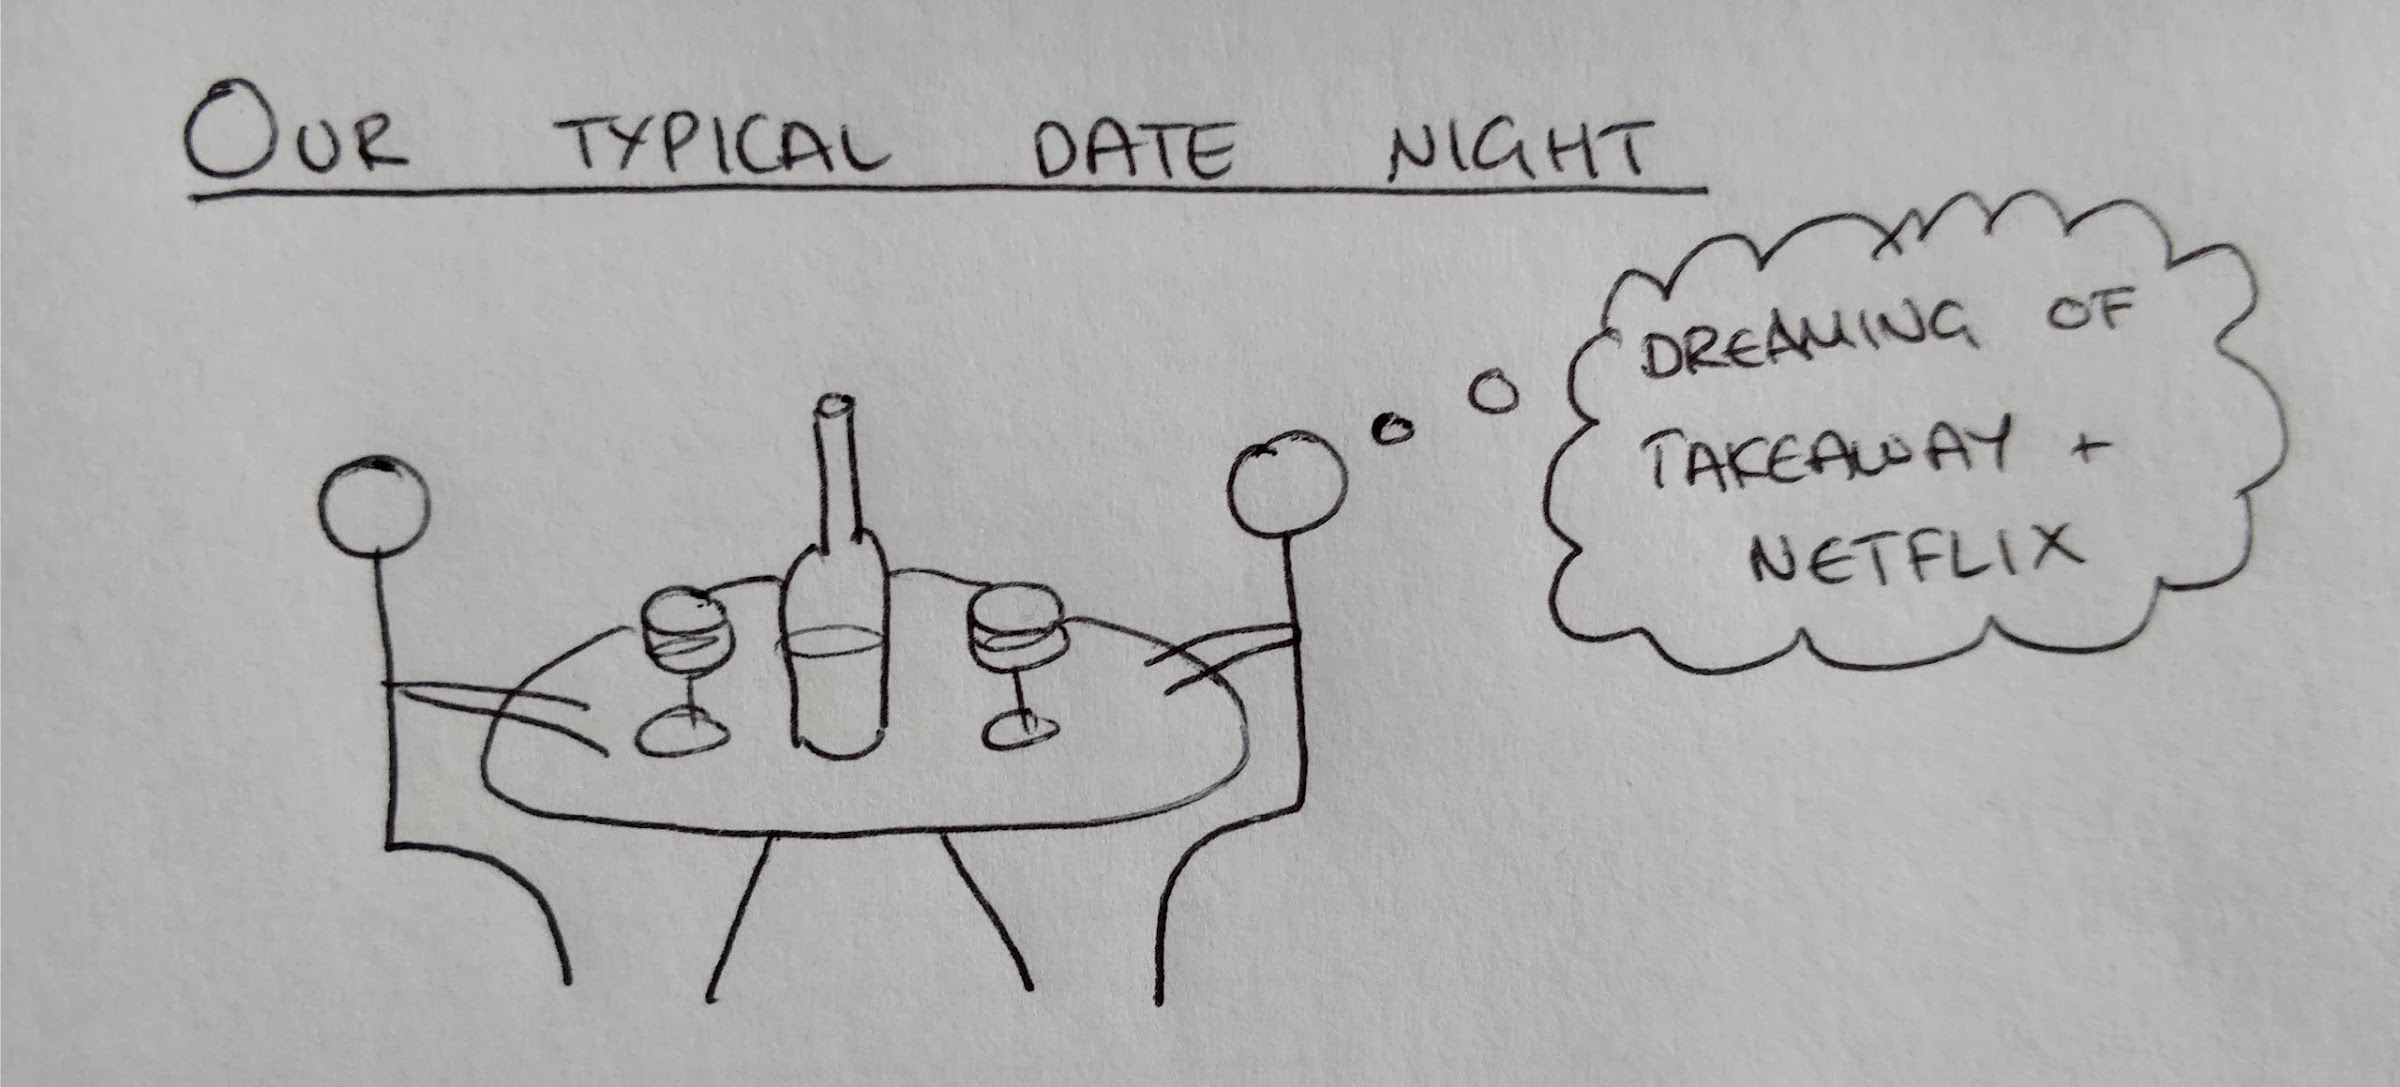 OUR TYPICAL DATE NIGHT
DREAMING OF
TAKEAWAY +
NETFLIX